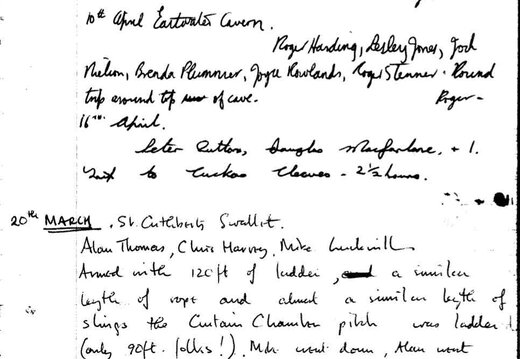 10th April Eastwater Cavern.
Roger Harding, Lesley Jones, Jock
Nielson, Brenda Plummer, Joyce Rowlands, Roger Stenner. Round
trip around top of cave.
Roger -
16th April.
Peter Sutton, Douglas Macfarlane, + 1.
Visit to Cuckoo Cleeves - 2½ hours.
20th MARCH. St. Cuthberts Swallet.
Alan Thomas, Chris Harvey, Mike
Armed with 120ft of ladder, a similar
length of rope and almost a similar length of
slings the Curtain Chamber pitch was ladder
(only 90ft. folks!). Mike went down, Alan went